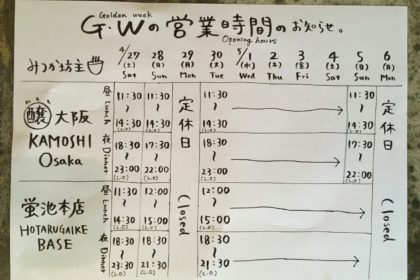 Golden week
G・Wの営業時間のお知らせ。
Opening hours
みつか坊主
4/27 28 29 30 5/1 2 3 4 5 6
(土) (日) (月) (火) (水) (木) (金) (土) (日) (月)
Sat Sun Mon Tue Wed Thu Fri Sat Sun Mon
醸 大阪
KAMOSHI
Osaka
昼 Lunch
11:30 11:30 11:30 11:30
~ ~ ~ ~
14:30 14:30 14:30 14:30
(L.O) (L.O) (L.O) (L.O)
夜 Dinner
18:30 17:30 18:30 17:30
~ ~ ~ ~
23:00 22:00 23:00 22:00
(L.O) (L.O) (L.O) (L.O)
定休日
Closed
定休日
Closed
蛍池本店
HOTARUGAIKE
BASE
昼 Lunch
11:30 12:00 12:00
~ ~ ~
14:30 15:00 15:00
(L.O) (L.O) (L.O)
夜 Dinner
18:30 18:30 18:30
~ ~ ~
21:30 21:30 21:30
(L.O) (L.O) (L.O)